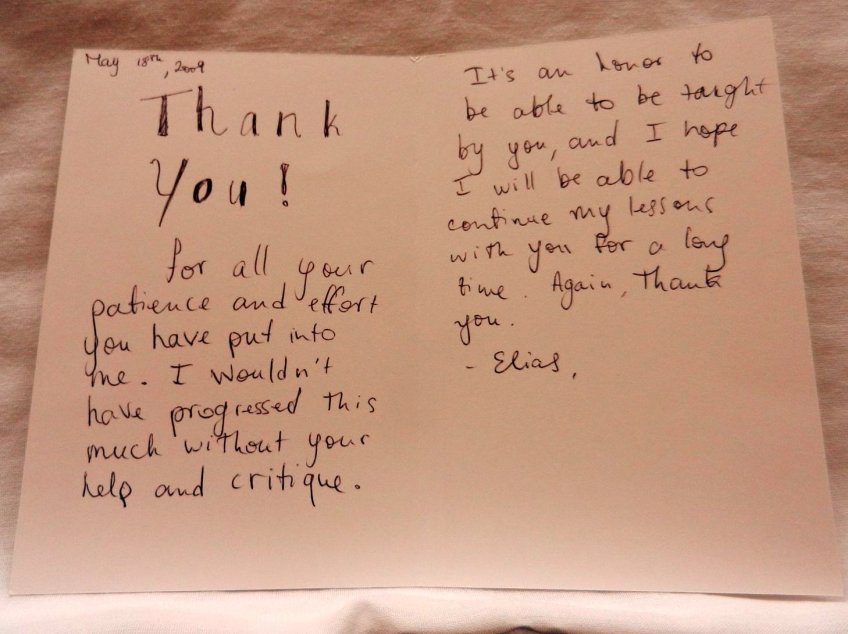 May 18th, 2009
Thank
You!
for all your
patience and effort
you have put into
me. I wouldn't
have progressed this
much without your
help and critique.
It's an honor to
be able to be taught
by you, and I hope
I will be able to
continue my lessons
with you for a long
time. Again, Thank
you.
- Elias,